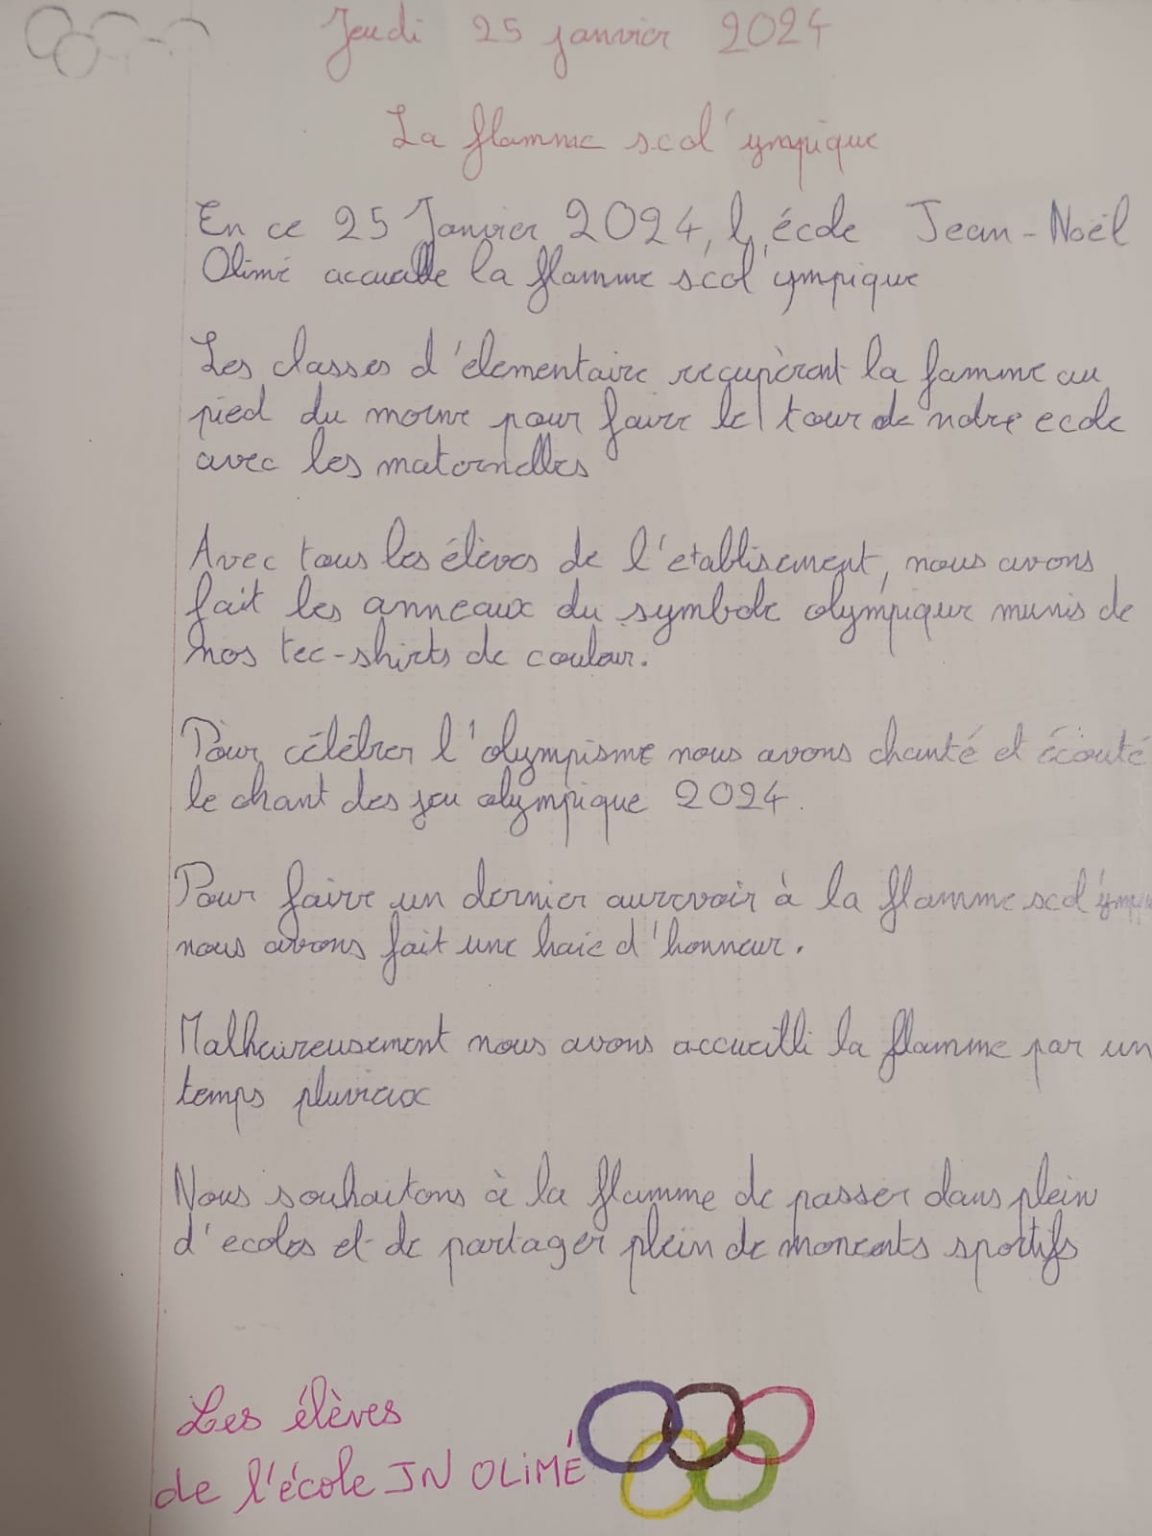 Jeudi 25 janvier 2024
La flamme scol'ympique
En ce 25 Janvier 2024, l'école Jean-Noël
Olimé accueille la flamme scol'ympique
Les classes d'élementaire recupèrent la famme au
pied du morne pour faire le tour de notre ecole
avec les maternelles
Avec tous les élèves de l'etablisement, nous avons
fait les anneaux du symbole olympique munis de
nos tee-shirts de couleur.
Pour célébrer l'olympisme nous avons chanté et écouté
le chant des jeu olympique 2024.
Pour faire un dernier aurevoir à la flamme
nous avons fait une haie d'honneur.
Malheureusement nous avons accueilli la flamme par un
temps pluvieux
Nous souhaitons à la flamme de passer dans plein
d'ecoles et de partager plein de moments sportifs
Les élèves
de l'école JN OLIMÉ